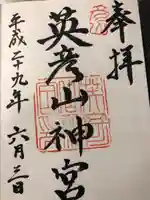 奉拝
英彦山神宮
平成二十九年 六月三日